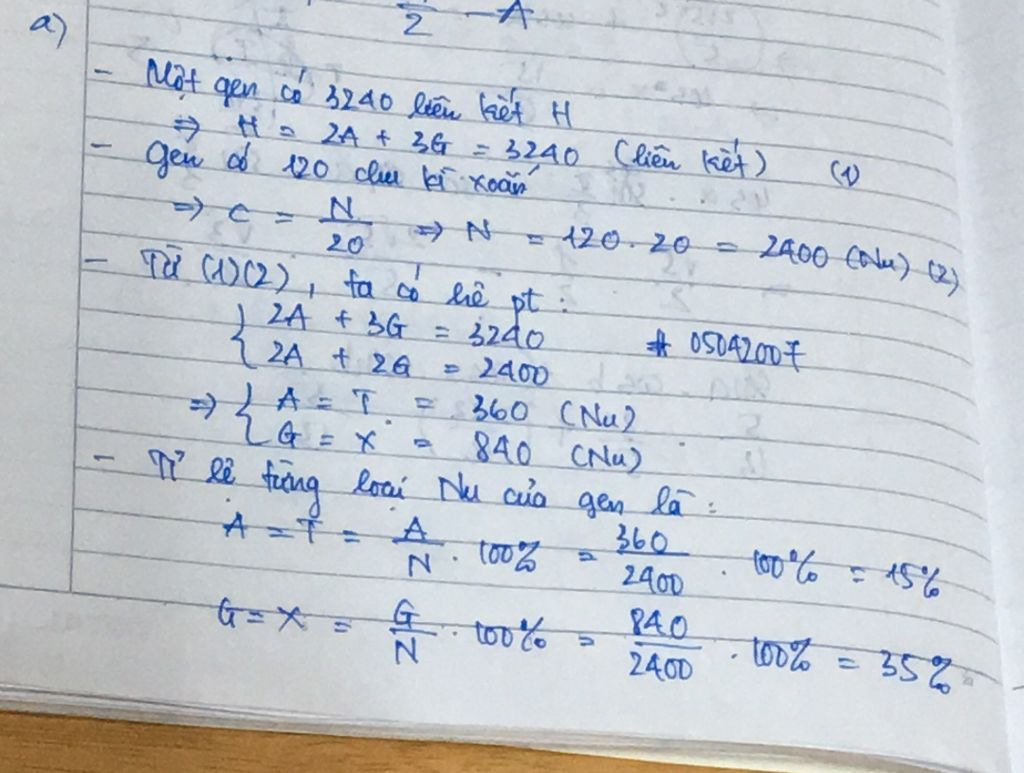 N/2 - A
a)
- Một gen có 3240 liên kết H
⇒ H = 2A + 3G = 3240 (liên kết) (1)
- Gen có 120 chu kì xoắn
⇒ C = N/20 ⇒ N = 120 . 20 = 2400 (Nu) (2)
- Từ (1)(2), ta có hệ pt :
{ 2A + 3G = 3240
{ 2A + 2G = 2400 # 05042007
⇒ { A = T = 360 (Nu)
{ G = X = 840 (Nu)
- Tỉ lệ từng loại Nu của gen là :
A = T = A/N . 100% = 360/2400 . 100% = 15%
G = X = G/N . 100% = 840/2400 . 100% = 35%